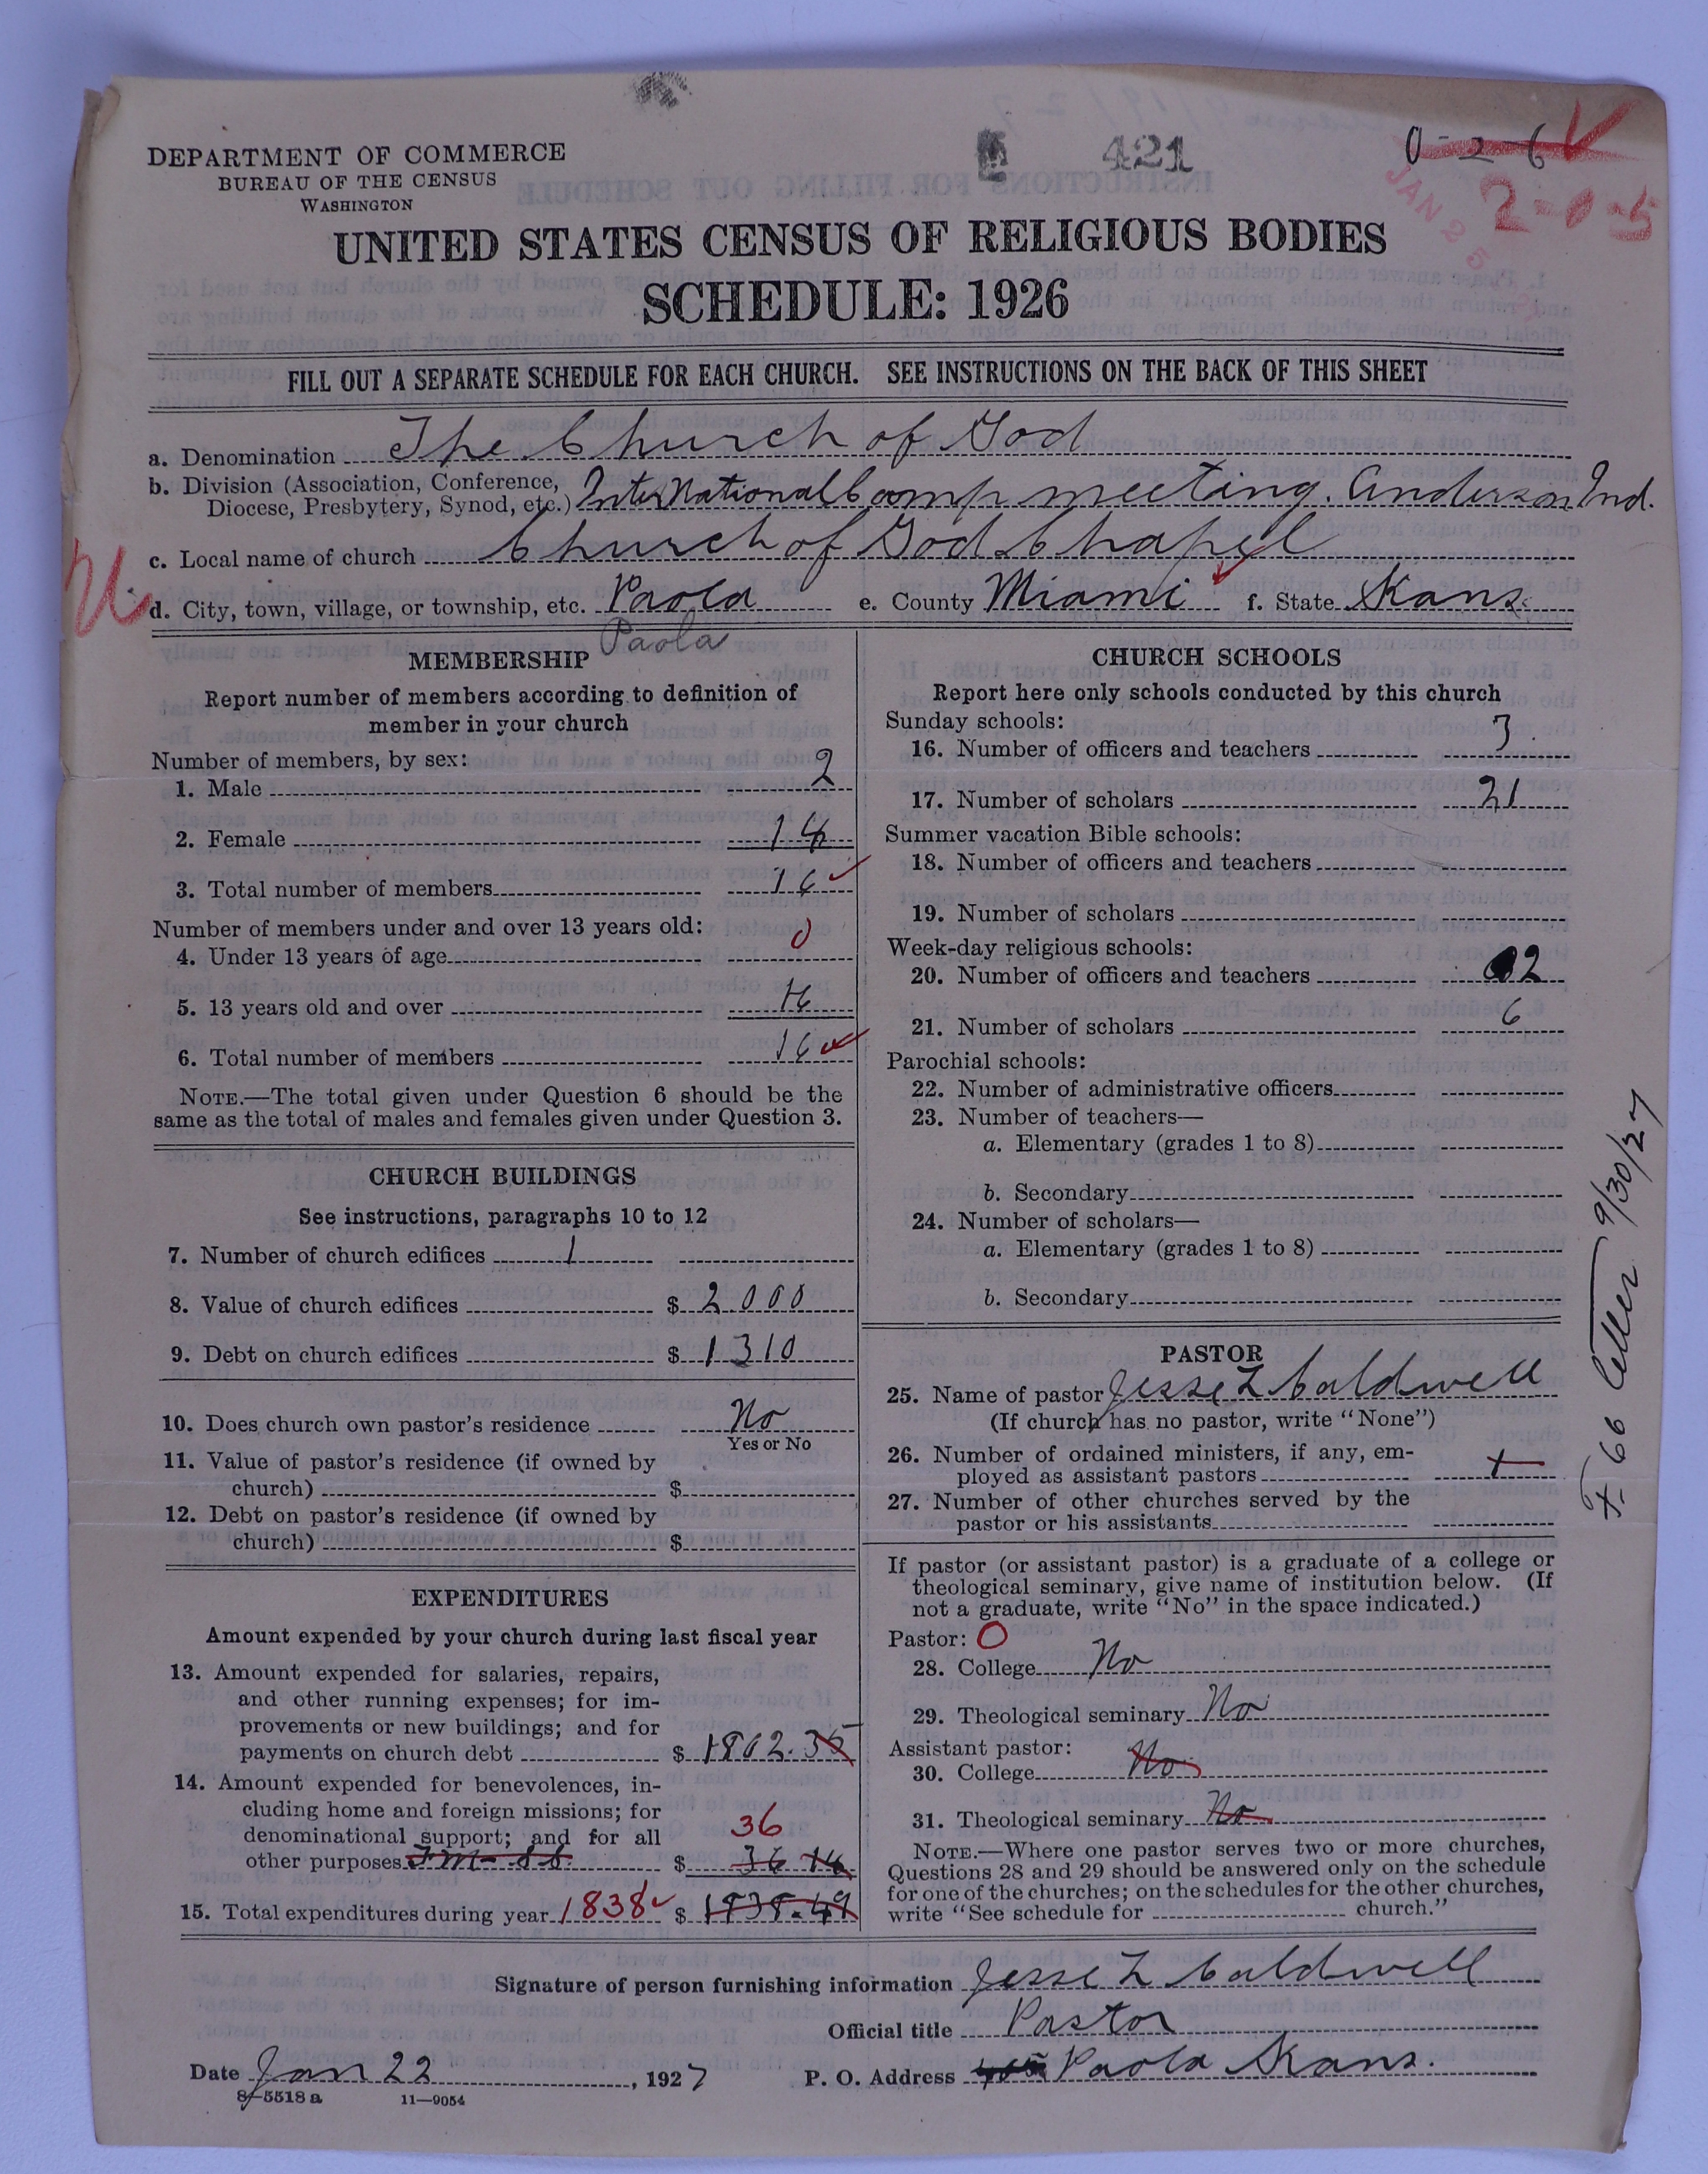 421
0-2-6
2-0-5
JAN 25
DEPARTMENT OF COMMERCE
BUREAU OF THE CENSUS
WASHINGTON
UNITED STATES CENSUS OF RELIGIOUS BODIES
SCHEDULE: 1926
FILL OUT A SEPARATE SCHEDULE FOR EACH CHURCH. SEE INSTRUCTIONS ON THE BACK OF THIS SHEET
a. Denomination The Church of God
b. Division (Association, Conference,
Diocese, Presbytery, Synod, etc.) InterNational Camp meeting. Anderson Ind.
c. Local name of church Church of God Chapel
d. City, town, village, or township, etc. Paola e. County Miami f. State Kans.
Paola
MEMBERSHIP
Report number of members according to definition of
member in your church
Number of members, by sex:
1. Male 2
2. Female 14
3. Total number of members 16
Number of members under and over 13 years old:
4. Under 13 years of age 0
5. 13 years old and over 16
6. Total number of members 16
NOTE.—The total given under Question 6 should be the
same as the total of males and females given under Question 3.
CHURCH BUILDINGS
See instructions, paragraphs 10 to 12
7. Number of church edifices 1
8. Value of church edifices $ 2.000
9. Debt on church edifices $ 1310
10. Does church own pastor's residence No
Yes or No
11. Value of pastor's residence (if owned by
church) $
12. Debt on pastor's residence (if owned by
church) $
EXPENDITURES
Amount expended by your church during last fiscal year
13. Amount expended for salaries, repairs,
and other running expenses; for im-
provements or new buildings; and for
payments on church debt $ 1802.35
14. Amount expended for benevolences, in-
cluding home and foreign missions; for
denominational support; and for all 36
other purposes $ 36 14
15. Total expenditures during year 1838 $ 1838.49
CHURCH SCHOOLS
Report here only schools conducted by this church
Sunday schools:
16. Number of officers and teachers 3
17. Number of scholars 21
Summer vacation Bible schools:
18. Number of officers and teachers
19. Number of scholars
Week-day religious schools:
20. Number of officers and teachers 2
21. Number of scholars 6
Parochial schools:
22. Number of administrative officers
23. Number of teachers—
a. Elementary (grades 1 to 8)
b. Secondary
24. Number of scholars—
a. Elementary (grades 1 to 8)
b. Secondary
PASTOR
25. Name of pastor Jesse L Caldwell
(If church has no pastor, write "None")
26. Number of ordained ministers, if any, em-
ployed as assistant pastors
27. Number of other churches served by the
pastor or his assistants
If pastor (or assistant pastor) is a graduate of a college or
theological seminary, give name of institution below. (If
not a graduate, write "No" in the space indicated.)
Pastor: O
28. College No
29. Theological seminary No
Assistant pastor:
30. College No
31. Theological seminary No
NOTE.—Where one pastor serves two or more churches,
Questions 28 and 29 should be answered only on the schedule
for one of the churches; on the schedules for the other churches,
write "See schedule for church."
Signature of person furnishing information Jesse L Caldwell
Official title Pastor
Date Jan 22, 1927 P. O. Address Paola Kans.
8-5518 a 11—9054
66 letter 9/30/27